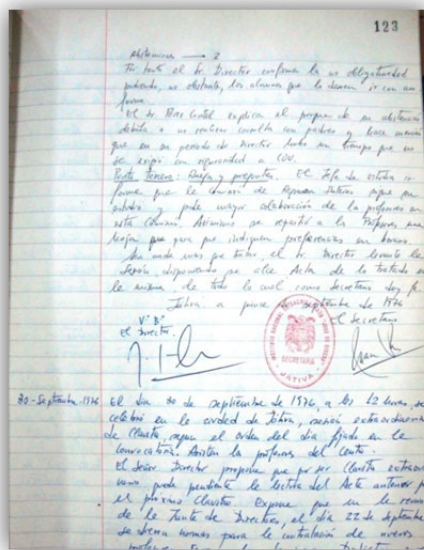 123
abstenciones → 2
Por tanto el Sr. Director confirma la no obligatoriedad
pudiendo, no obstante, los alumnos que lo deseen ir con uni
forme.
El Sr. explica el porque de su abstención
debida a no realizar consulta con padres y hace mención
que en su periodo de Director hubo un tiempo que no
se exigió con a COU.
Punto tercero: Ruegos y preguntas. El Jefe de estudios in
forma que la comisión de Regimen Interno sigue en
estudio y pide mayor colaboración de los profesores en
esta Comisión. Asimismo se repartió a los Profesores una
hoja para que indiquen preferencias en horario.
Sin nada mas que tratar, el Sr. Director levanta la
Sesión, disponiendo se alce Acta de lo tratado en
la misma de todo lo cual como Secretario doy fe.
Játiva, a de septiembre de 1976
VºBº
El Director,
El Secretario
SECRETARIA
JATIVA
30-Septiembre-1976
El dia 30 de septiembre de 1976, a las 12 horas, se
celebró en la ciudad de Játiva, sesión extraordinaria
de Claustro, segun el orden del dia fijado en la
convocatoria. Asisten los profesores del Centro.
El Señor Director propone que por ser Claustro extraor
quede pendiente la lectura del Acta anterior para
el próximo Claustro. Expone que en la reunión
de la Junta de Directores, el dia 22 de Septiembre
se dieron normas para la contratación de nuevos